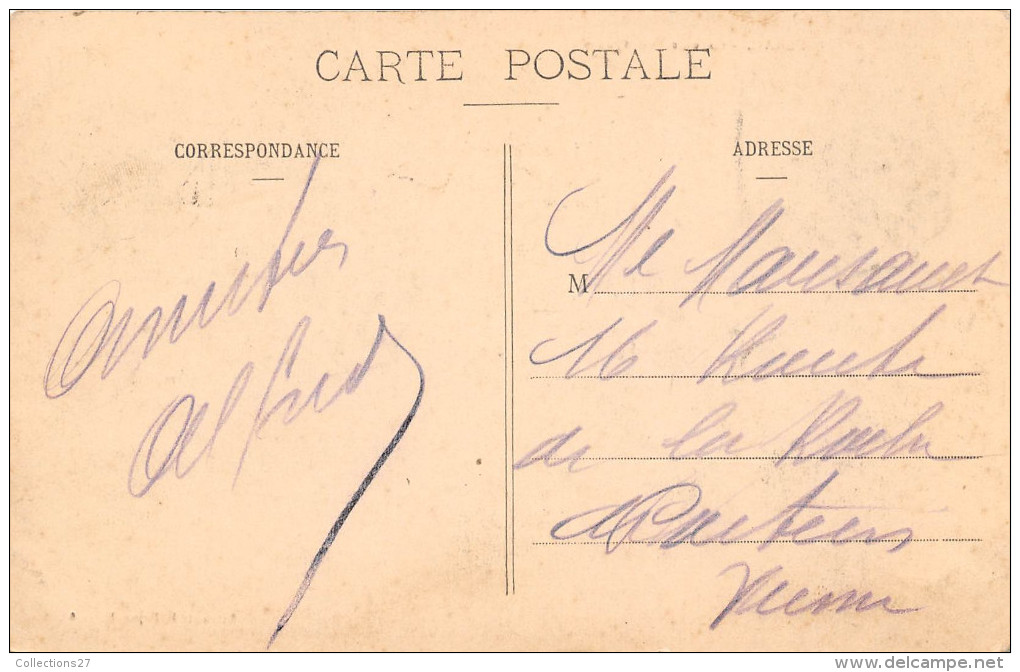 CARTE POSTALE
CORRESPONDANCE
ADRESSE
amities
Alfred
M
Me
16 Route
de la Roche
Poitiers
Vienne
Collections27
www.delcampe.net